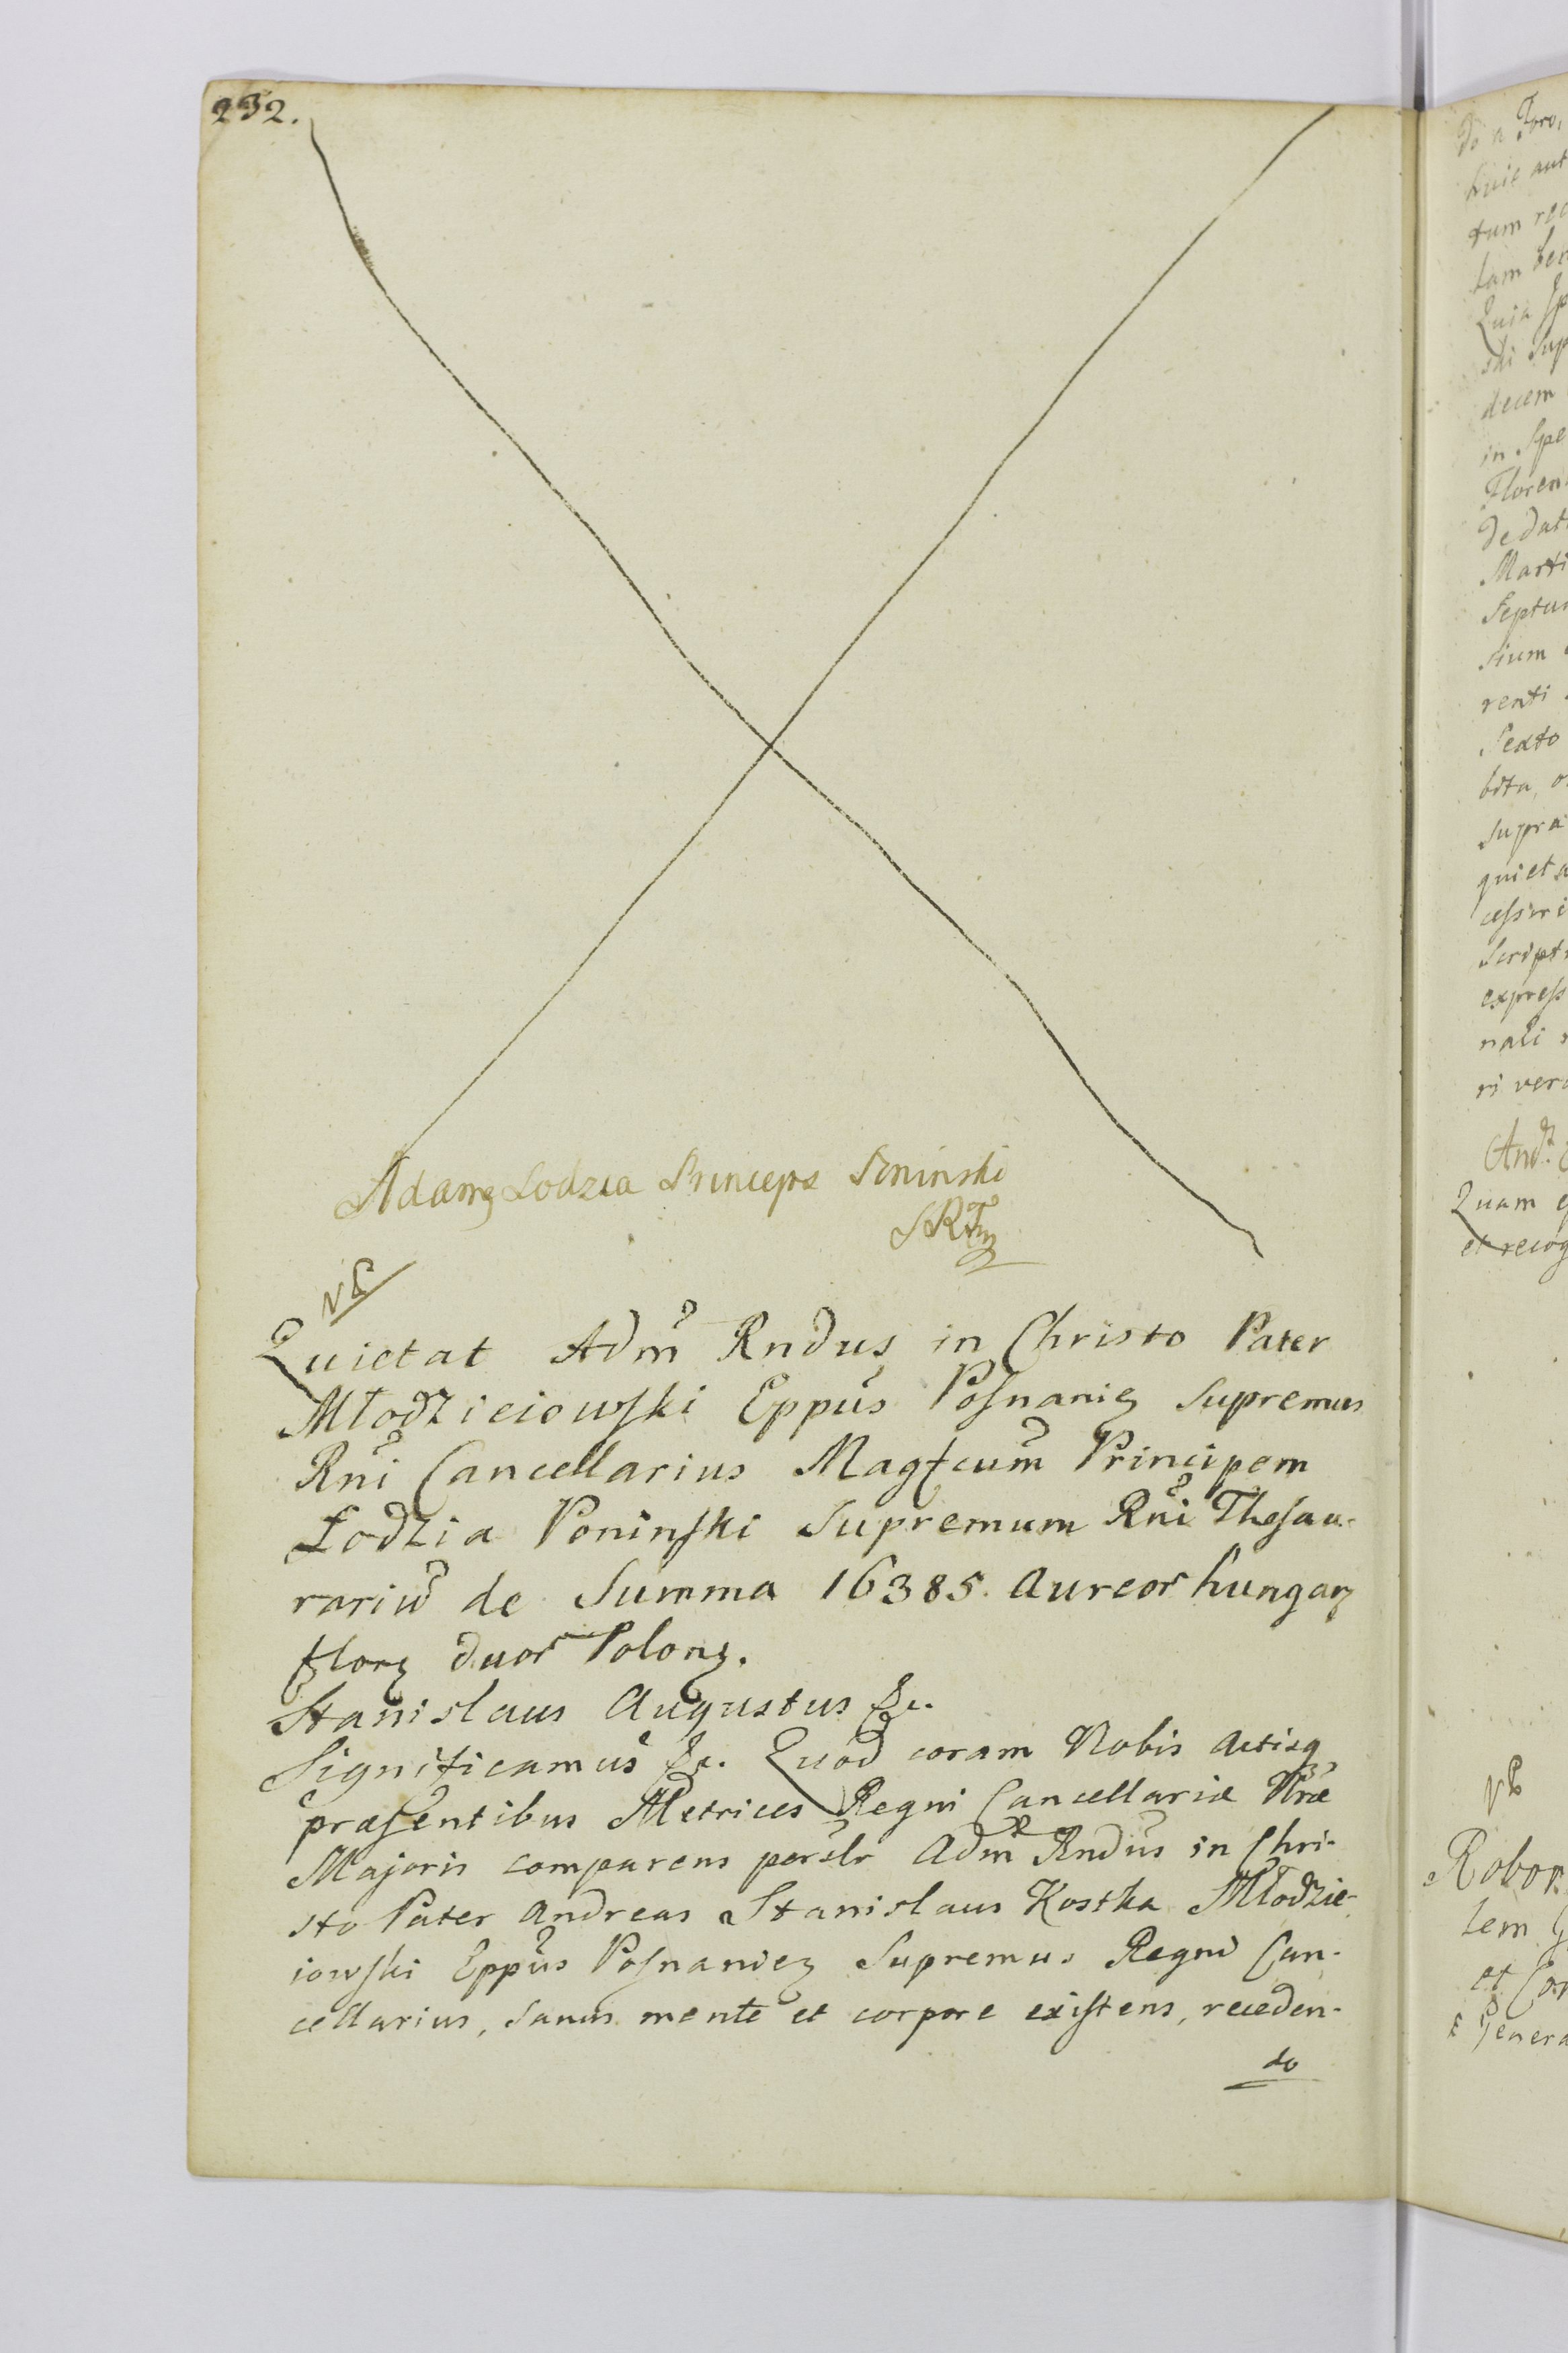 232.
Adamꝫ Lodzia Princeps Poninski
SRTm
NB
Quietat Adm̃ Rndus in Christo Pater
Młodzieiowski Eppus Posnaniꝫ Supremus
Rñi Cancellarius Magfcum Principem
Łodzia Poninski Supremum Rñi Thesau-
rariũ de Summa 16385. Aureor hungarꝫ
florꝫ duor Polonꝫ.
Stanislaus Augustus &c.
Significamus &c. Quod coram Nobis Actisqꝫ
præsentibus Metrices Regni Cancellariæ Nræ
Majoris comparens persłr Adm̃ Rndus in Chri-
sto Pater Andreas Stanislaus Kostka Młodzie-
iowski Eppus Posnanieꝫ Supremus Regni Can-
cellarius, sanus mente et corpore existens, receden-
do
do a Foro,
huic aut
tum rec
tam ben
Quia
ski Sup
decem
in Spe
Floren
de dat
Marti
Septu
sium
renti
Sexto
supra
quieta
Script
express
ri vero
Quam
et recog
NB
Robor
tem
et Con
Genera